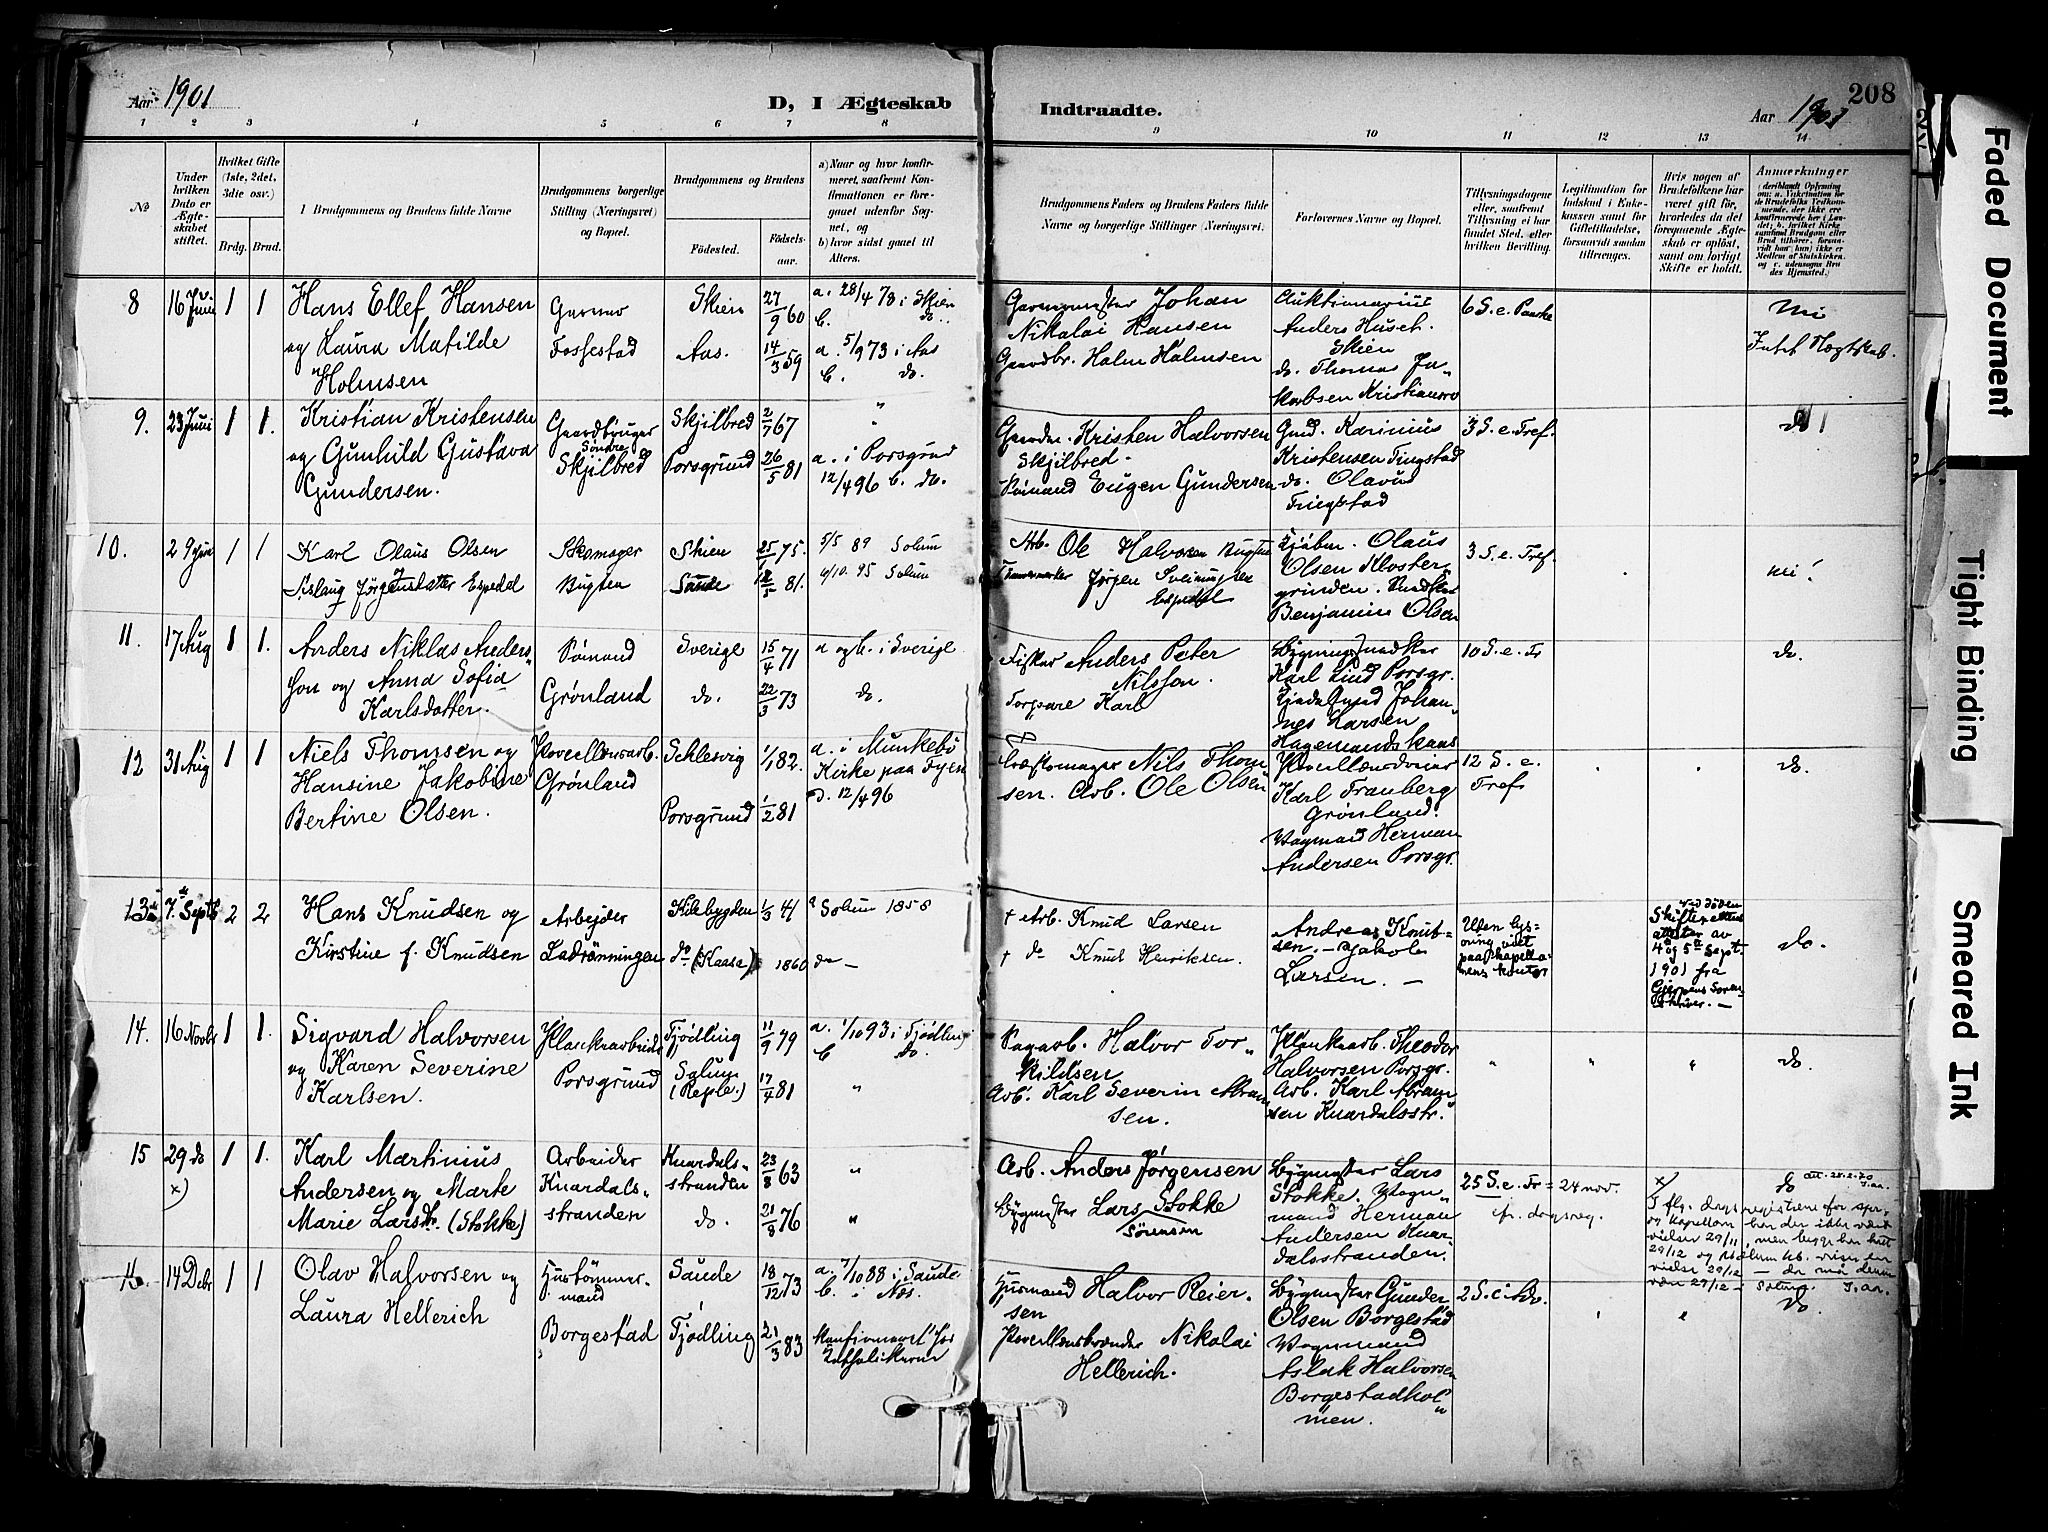 Aar 1901
D, I Ægteskab
Indtraadte.
Aar 1901
208
1 2 3 4 5 6 7 8 9 10 11 12 13 14
№
Under hvilken Dato er Ægteskabet stiftet.
Hvilket Gifte (1ste, 2det, 3die osv.)
Brdg. Brud.
Brudgommens og Brudens fulde Navne
Brudgommens borgerlige Stilling (Næringsvei) og Bopæl.
Brudgommens og Brudens
Födested.
Födselsaar.
a) Naar og hvor konfirmeret, saafremt Konfirmationen er foregaaet udenfor Sognet, og
b) hvor sidst gaaet til Alters.
Brudgommens Faders og Brudens Faders fulde Navne og borgerlige Stillinger (Næringsvei.
Forlovernes Navne og Bopæl.
Tillysningsdagene eller, saafremt Tillysning ei har fundet Sted, efter hvilken Bevilling.
Legitimation for Indskud i Enkekassen samt for Giftetilladelse, forsaavidt saadan tiltrænges.
Hvis nogen af Brudefolkene har været gift før, hvorledes da det foregaaende Ægteskab er oplöst, samt om lovligt Skifte er holdt.
Anmærkninger
8 16 Juni 1 1
Hans Ellef Hansen
og Laura Matilde
Holmsen
Garver
Fossestad
Skien
Aas.
27/9 60
14/3 59
a. 28/4 78 i Skien
b. do.
a. 5/9 73 i Aas
b. do.
Garvermester Johan
Nikolai Hansen
Gaardbr. Holm Holmsen
Auktionarius
Anders Husch.
Skien
do. Thomas Ja-
kobsen Kristiansro
6 S. e. Paaske
Nei
Intet Slægtskab.
9. 23 Juni 1 1.
Kristian Kristensen
og Gunhild Gustava
Gundersen.
Gaardbruger
Søndre
Skjilbred
Skjilbred
Porsgrund
2/7 67
26/5 81
"
"
a. i Porsgrund
12/4 96 b. do.
Gaardbr. Kristen Halvorsen
Skjilbred.
Sömand Eugen Gundersen
Gmd. Karinius
Kristensen Tingstad
do. Olavus
Tingstad
3 S. e. Tref.
do
10. 29 Juni 1 1
Karl Olaus Olsen
Aslaug Jørgensdatter Espedal
Skomager
Bugten
Skien
Saude
25/1 75.
12/5 81.
5/5 89 Solum
6/10. 95 Solum
Arb. Ole Halvorsen Bugten
Tømmermerker Jørgen Sveinungsen
Espedal
Kjøbm. Olaus
Olsen Kloster-
grinden. Snedker
Benjamin Olsen
3 S. e. Tref.
nei!
11. 17 Aug 1 1.
Anders Niklas Anders-
son og Anna Sofia
Karlsdotter.
Sömand
Grønland
Sverige
do.
15/4 71
22/3 73
a og b. i Sverige
do.
Fisker Anders Peter
Nilsson.
Torpare Karl
Bygningssnedker
Karl Lund Porsgr.
Johan-
nes Larsen
Hagemandskaas
10 S. e. Tr
do.
12 31 Aug 1 1
Niels Thomsen og
Hansine Jakobine
Bertine Olsen.
Porcellensarb.
Grønland
Schlesvig
Porsgrund
1/1 82.
1/2 81
a. i Munkebö
Kirke paa Fyen
d. 12/4 96
Træskomager Nils Thom
sen. Arb. Ole Olsen
Porcellændreier
Karl Tranberg
Grønland.
Vognmand Herman
Andersen Porsgr.
12 S. e.
Tref
do.
13 7. Septb 2 2
Hans Knudsen og
Kirstine f. Knudsen
Arbejder
Ladrönningen
Kilebygden
do (Kaasa)
1/3 41
1860
a Solum 1858
do —
† Arb. Knud Larsen
† do Knut Henriksen.
Andreas Knut-
sen. — Jakob
Larsen. —
Uden lys-
ning viet
paa kapella-
nens kontor
ved döden
Skifteattest
attester av
4 og 5te Sept.
1901 fra
Gjerpens Soren-
skriver. —
do.
14. 16 Novbr 1 1.
Sigvard Halvorsen
og Karen Severine
Karlsen.
Plankearbeider
Porsgrund
Tjødling
Solum
(Rejsle.)
11/9 79
17/4 81
a. 1/10 93 i Tjødling
b do.
"
Sagarb. Halvor Tor-
kildsen
Arb. Karl Severin Abram
sen.
Plankearb. Theodor
Halvorsen Porsgr.
Arb. Karl Abram
sen Knardalsstr.
"
"
"
do.
15 29 do 1 1.
x)
Karl Martinius
Andersen og Marte
Marie Larsdtr. (Stokke)
Arbeider
Knardals-
stranden
Knardals-
stranden
do.
23/8 63
21/8 76
"
"
Arb. Anders Jörgensen
Bygmester Lars Stokke
Sörensen
Bygmester Lars
Stokke. Vogn-
mand Herman
Andersen Knar-
dalsstranden.
25 S. e. Tr = 24 nov.
ifr. dagsreg.
do att. 25.2.70
x/
I flg. dagsregistrene for spr.
og kapellan har der ikke været
vielser 29/11, men begge har hatt
29/12 og Solum kb. viser en
vielse 29/12 — da må denne
være 29/12 —
16. 14 Debr 1 1
Olav Halvorsen og
Laura Hellerich
Hustömmer-
mand
Borgestad
Saude
Tjødling
18/12 73
21/3 83
a. 7/10 88 i Saude
b. i Næs.
Konfirmeret hos
Katholikerne
Husmand Halvor Reier-
sen
Porcellænsbrænder Nikolai
Hellerich.
Bygmester Gunder
Olsen Borgestad
Vognmand
Aslak Halvorsen
Borgestadhol-
men.
2 S. i Adv.
do.
Faded Document
Tight Binding
Smeared Ink